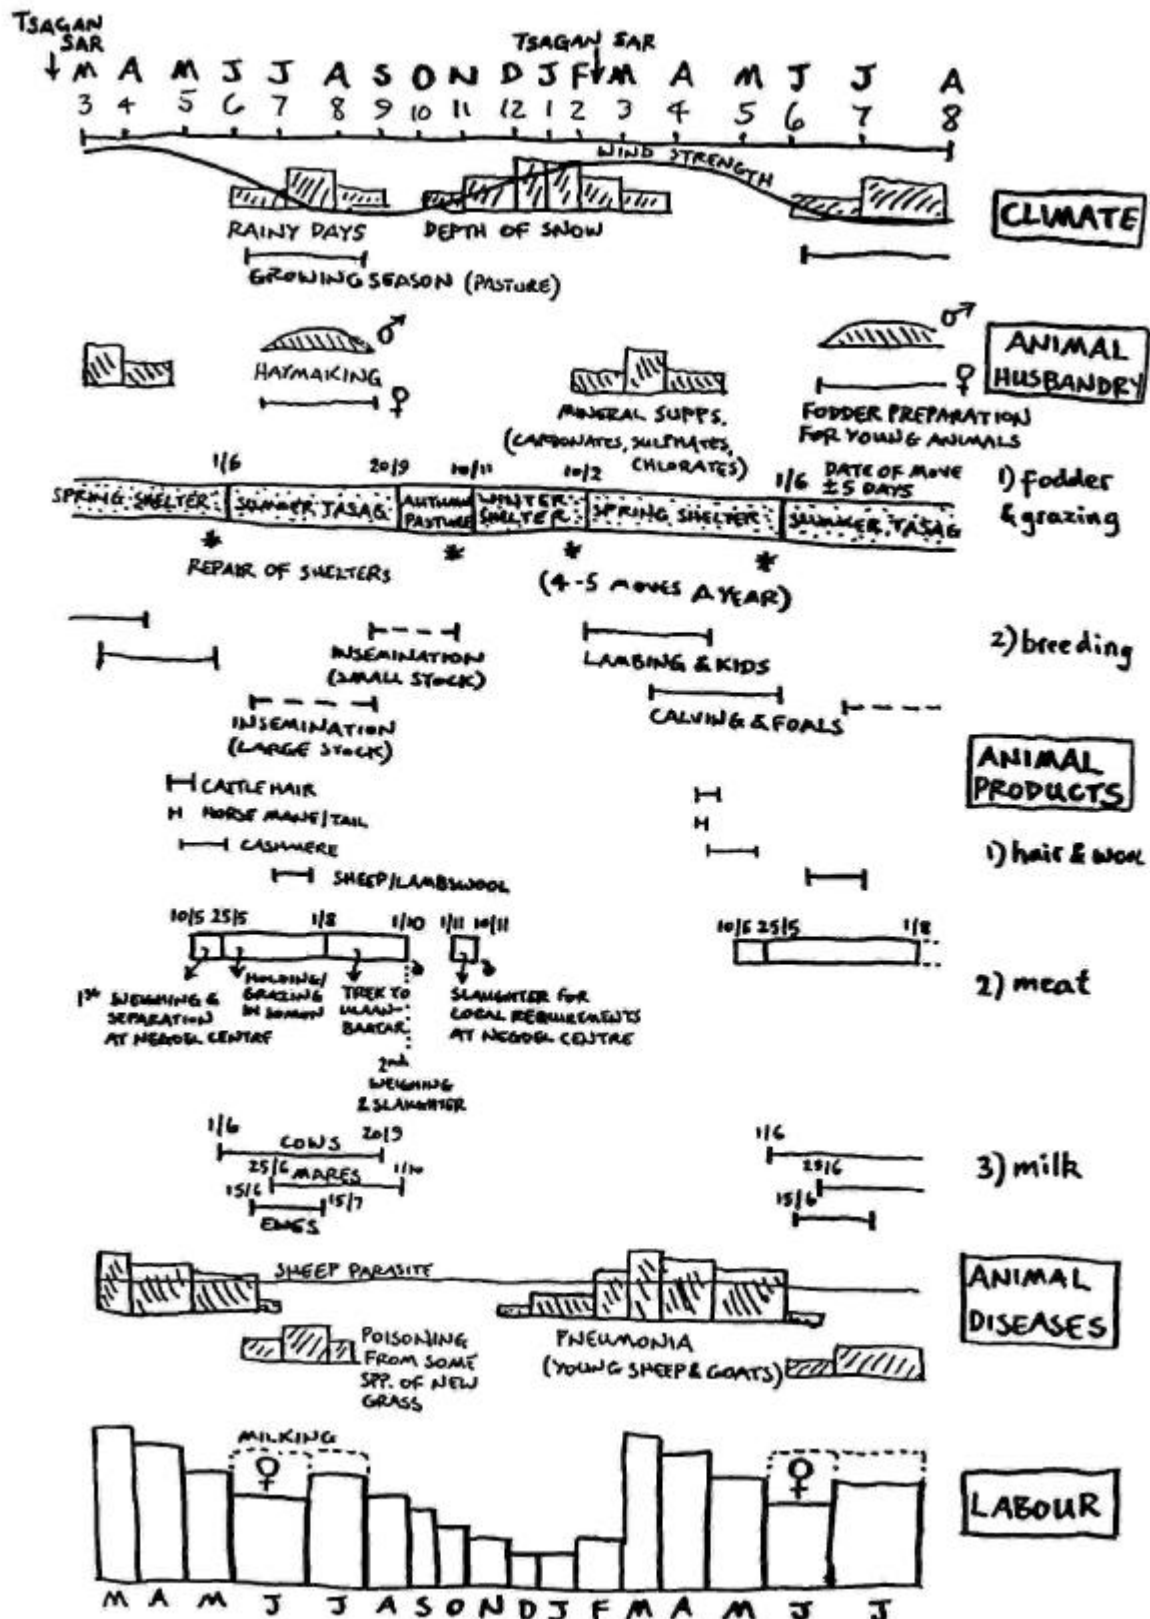 TSAGAN
SAR
TSAGAN SAR
M A M J J A S O N D J F M A M J J A
3 4 5 6 7 8 9 10 11 12 1 2 3 4 5 6 7 8
WIND STRENGTH
RAINY DAYS
DEPTH OF SNOW
CLIMATE
GROWING SEASON (PASTURE)
♂ ♂
HAYMAKING
♀ ♀
ANIMAL
HUSBANDRY
MINERAL SUPPS.
(CARBONATES, SULPHATES,
CHLORATES)
FODDER PREPARATION
FOR YOUNG ANIMALS
1/6 20/9 10/11 10/2 1/6
DATE OF MOVE
±5 DAYS
1) fodder
& grazing
SPRING SHELTER
SUMMER JASAG
AUTUMN
PASTURE
WINTER
SHELTER
SPRING SHELTER
SUMMER JASAG
* * * *
REPAIR OF SHELTERS
(4-5 MOVES A YEAR)
2) breeding
INSEMINATION
(SMALL STOCK)
LAMBING & KIDS
INSEMINATION
(LARGE STOCK)
CALVING & FOALS
ANIMAL
PRODUCTS
CATTLE HAIR
HORSE MANE/TAIL
CASHMERE
SHEEP/LAMBSWOOL
1) hair & wool
10/5 25/5 1/8 1/10 1/11 10/11 10/5 25/5 1/8
2) meat
1st WEIGHING &
SEPARATION
AT NEGDEL CENTRE
HOLDING/
GRAZING
IN SOMON
TREK TO
ULAAN-
BAATAR
SLAUGHTER FOR
LOCAL REQUIREMENTS
AT NEGDEL CENTRE
2nd
WEIGHING
& SLAUGHTER
1/6 COWS 20/9
25/6 MARES 1/10
15/6 15/7
EWES
1/6
25/6
15/6
3) milk
SHEEP PARASITE
ANIMAL
DISEASES
POISONING
FROM SOME
SPP. OF NEW
GRASS
PNEUMONIA
(YOUNG SHEEP & GOATS)
MILKING
♀ ♀
LABOUR
M A M J J A S O N D J F M A M J J